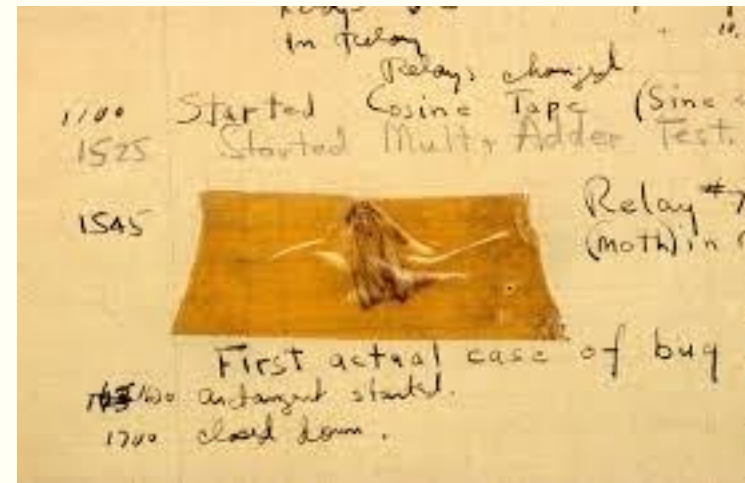 in relay
Relays changed
1100 Started Cosine Tape (Sine
1525 Started Mult + Adder Test.
1545 Relay #7
(moth) in
First actual case of bug
1630 arctangent started.
1700 closed down.